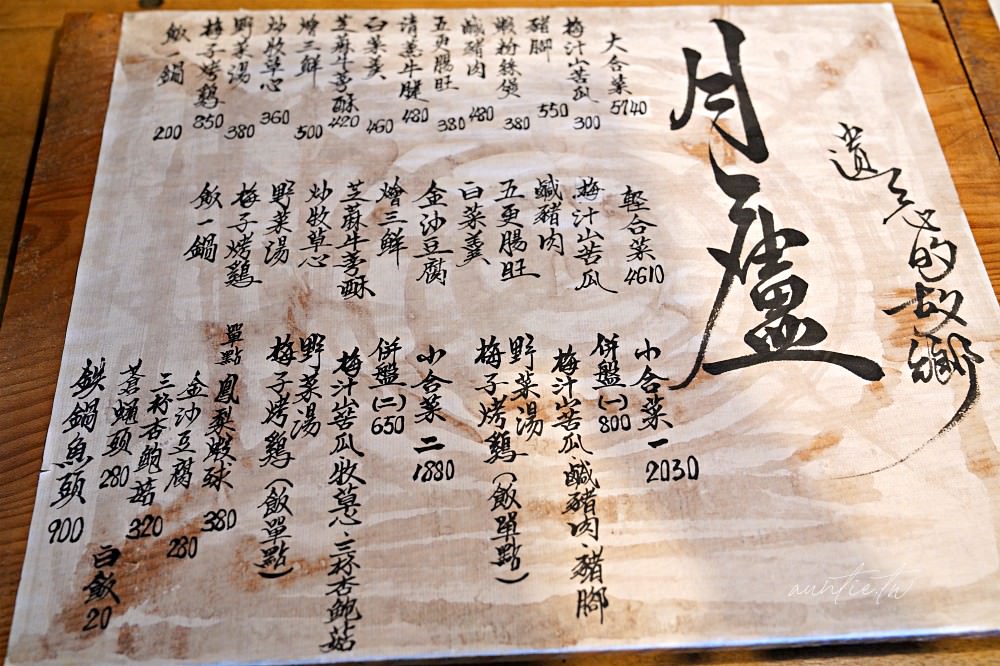 遺忘的故鄉
月廬
大合菜 5740
梅汁山苦瓜 300
豬腳 550
粉絲煲 380
鹹豬肉 480
五更腸旺 380
清蒸牛腱 480
白菜羹 460
芝麻牛蒡酥 420
燴三鮮 500
炒牧草心 360
野菜湯 380
梅子烤鷄 850
飯一鍋 200
輕合菜 4610
梅汁山苦瓜
鹹豬肉
五更腸旺
白菜羹
金沙豆腐
燴三鮮
芝蔴牛蒡酥
炒牧草心
野菜湯
梅子烤鷄
飯一鍋
小合菜一 2030
併盤(一) 800
梅汁山苦瓜、鹹豬肉、豬腳
野菜湯
梅子烤鷄(飯單點)
小合菜二 1880
併盤(二) 650
梅汁山苦瓜、牧草心、三杯杏鮑菇
野菜湯
梅子烤鷄(飯單點)
單點
鳳梨蝦球 380
金沙豆腐 280
三杯杏鮑菇 320
蒼蠅頭 280
鉄鍋魚頭 900
白飯 20
auntie.tw